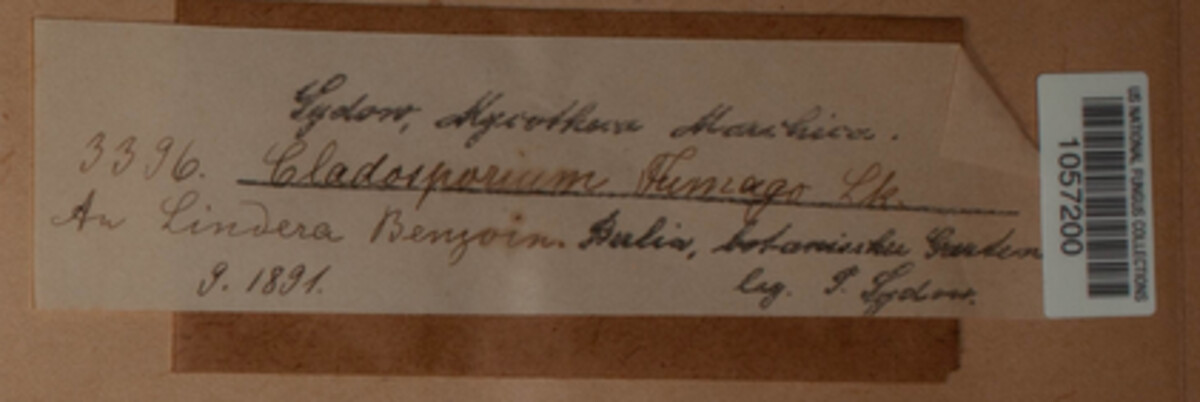 Sydow, Mycotheca Marchica.
3396. Cladosporium Fumago Lk.
An Lindera Benzoin. Berlin, botanischer Garten
9. 1891.
leg. P. Sydow.
US NATIONAL FUNGUS COLLECTIONS
1057200